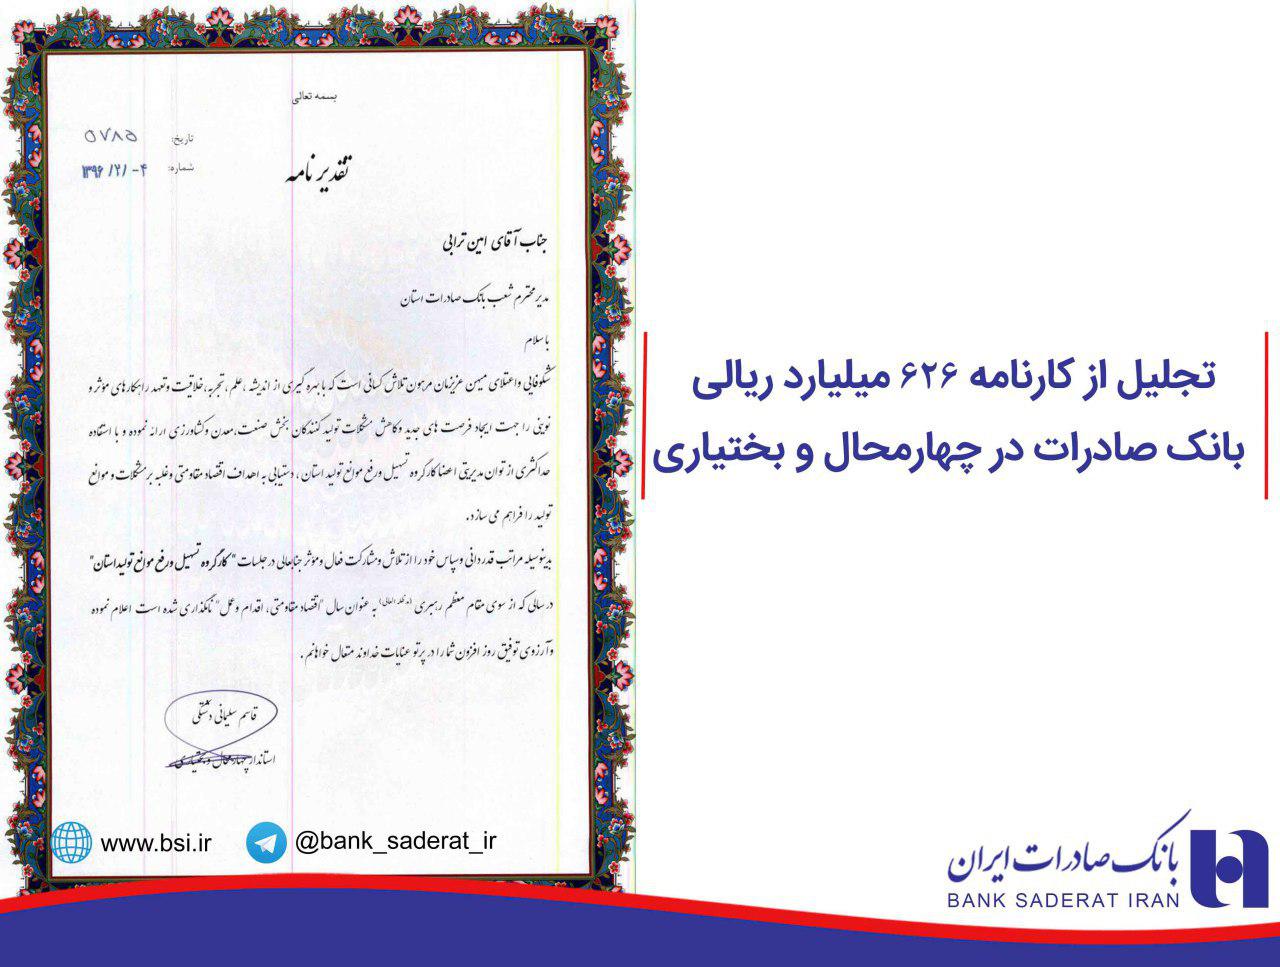 بسمه تعالی
تاریخ: ۵۷۸۵
شماره: ۱۳۹۶/۲/۰۴
تقدیر نامه
جناب آقای امین ترابی
مدیر محترم شعب بانک صادرات استان
با سلام
شکوفایی و اعتلای میهن عزیزمان مرهون تلاش کسانی است که با بهره گیری از اندیشه ، علم ، تجربه ، خلاقیت و تعهد راهکارهای مؤثر و
نوینی را جهت ایجاد فرصت های جدید و کاهش مشکلات تولید کنندگان بخش صنعت، معدن و کشاورزی ارائه نموده و با استفاده
حداکثری از توان مدیریتی اعضا کارگروه تسهیل و رفع موانع تولید استان ، دستیابی به اهداف اقتصاد مقاومتی و غلبه بر مشکلات و موانع
تولید را فراهم می سازد.
بدینوسیله مراتب قدردانی و سپاس خود را از تلاش و مشارکت فعال و مؤثر جنابعالی در جلسات "کارگروه تسهیل و رفع موانع تولید استان"
در سالی که از سوی مقام معظم رهبری (مدظله العالی) به عنوان سال "اقتصاد مقاومتی، اقدام و عمل" نامگذاری شده است اعلام نموده
و آرزوی توفیق روز افزون شما را در پرتو عنایات خداوند متعال خواهانم .
قاسم سلیمانی دشتکی
استاندار چهارمحال و بختیاری
www.bsi.ir @bank_saderat_ir
تجلیل از کارنامه ۶۲۶ میلیارد ریالی
بانک صادرات در چهارمحال و بختیاری
بانک صادرات ایران
BANK SADERAT IRAN